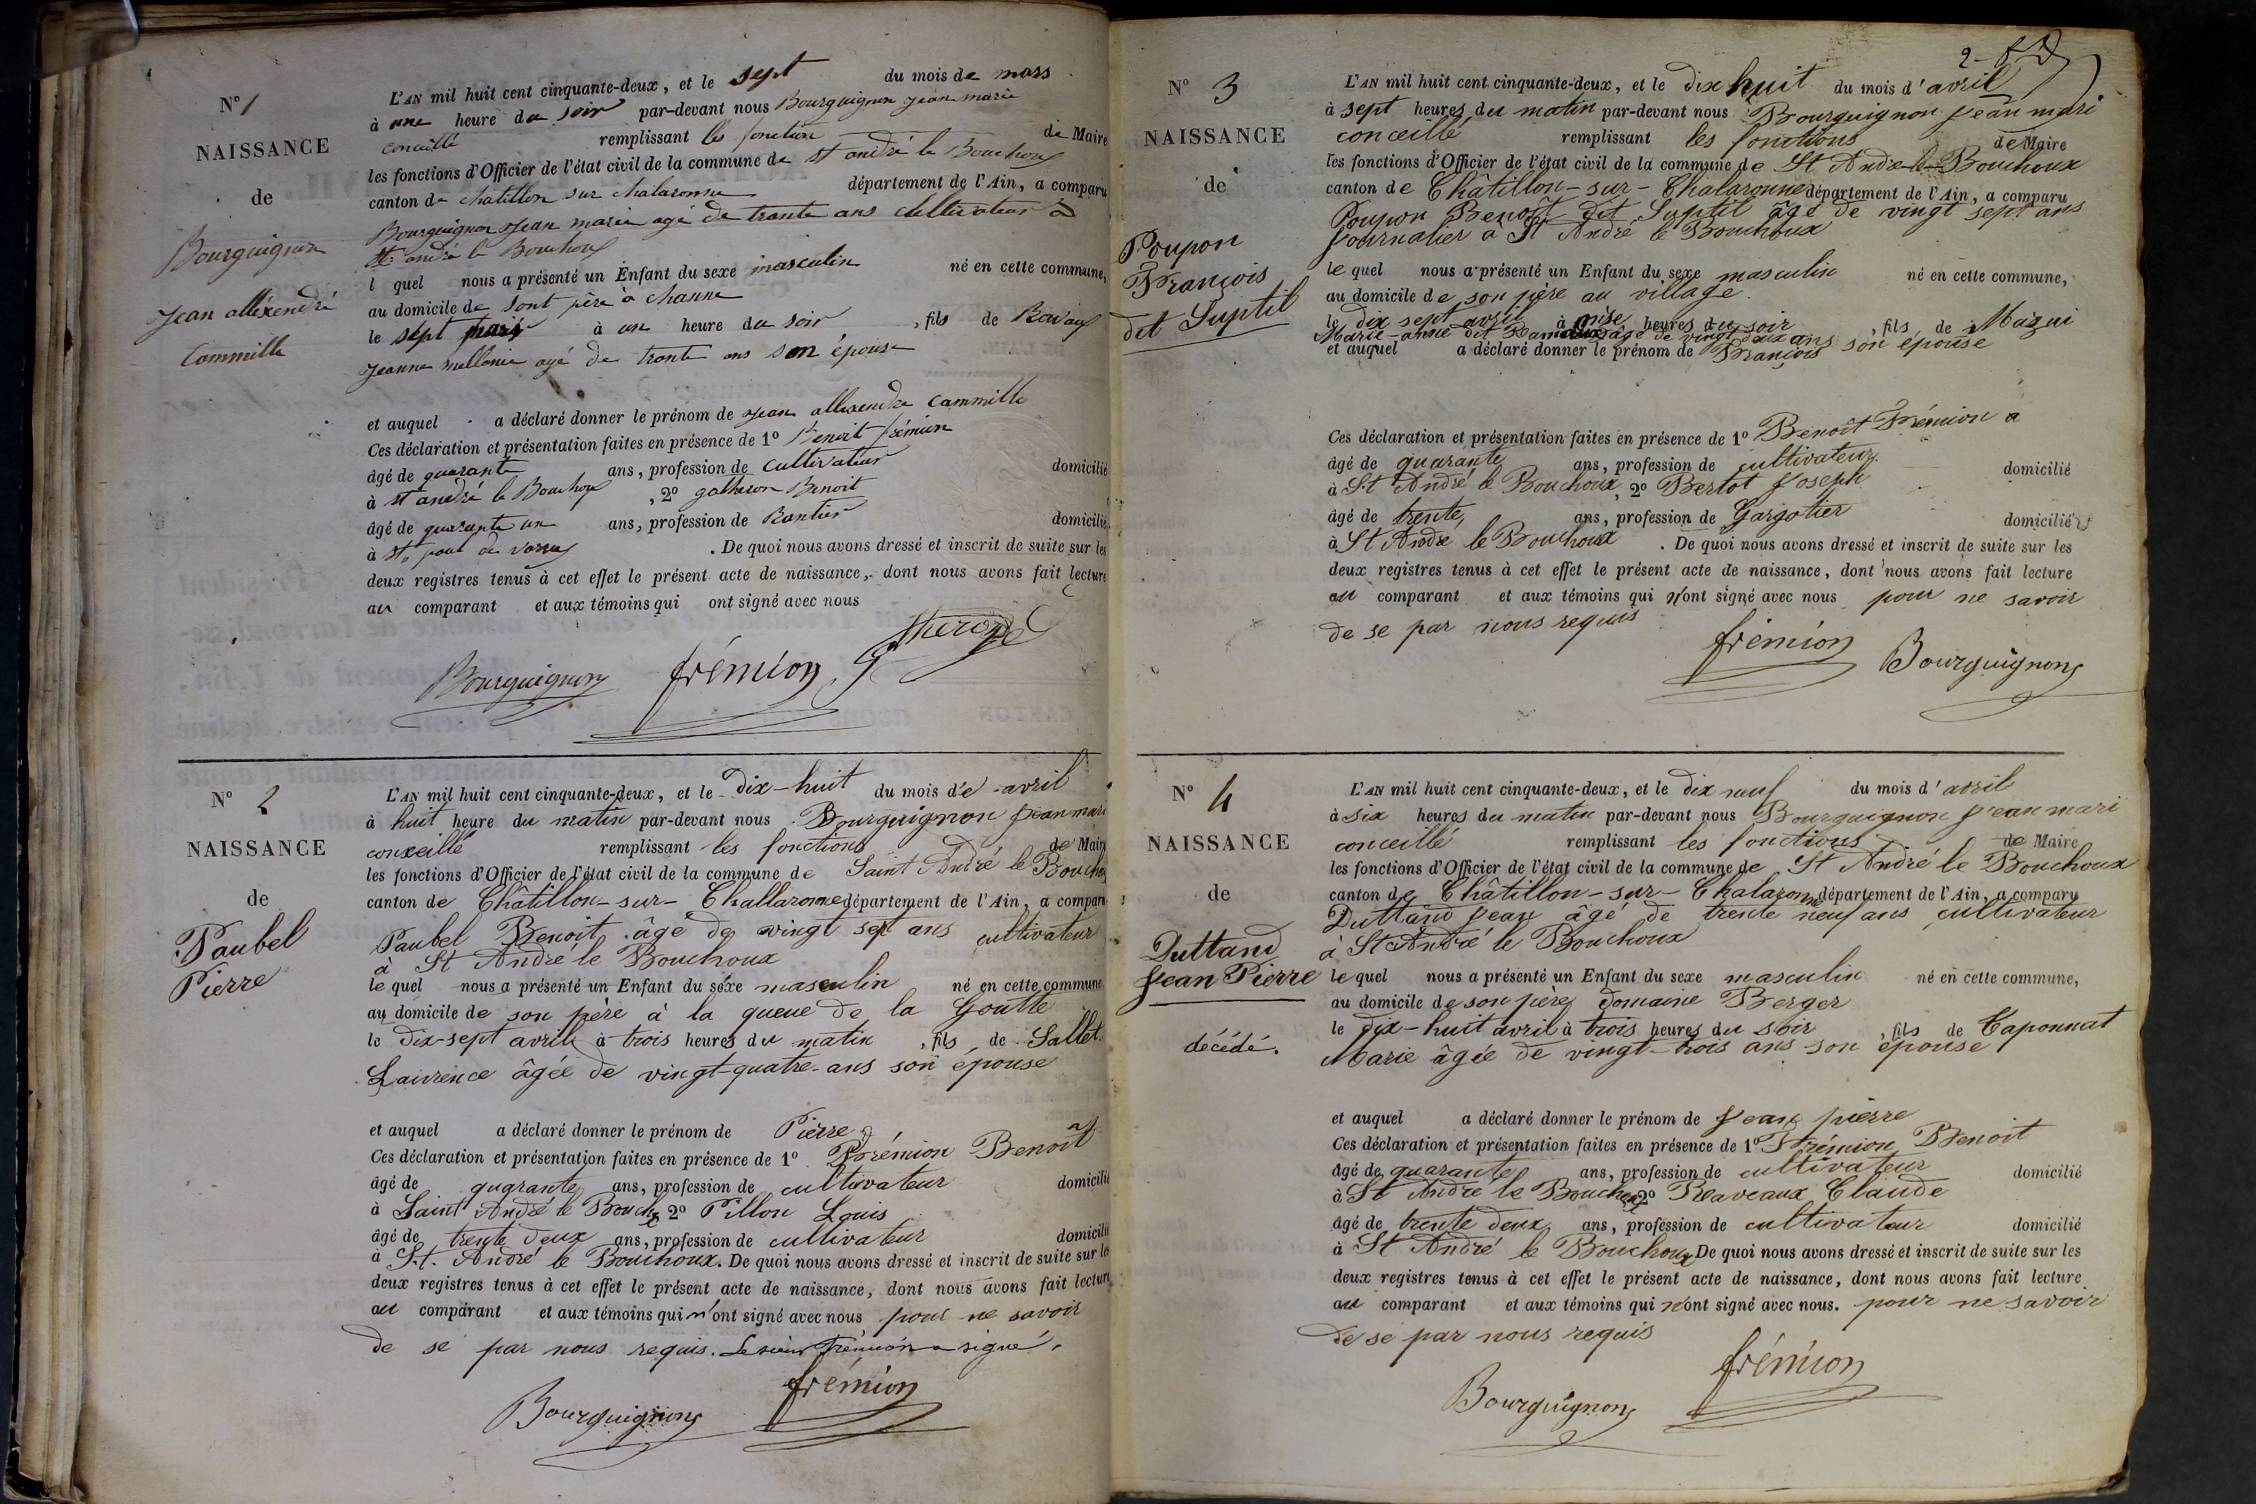 N° 1
NAISSANCE
de
Bourguignon
Jean alléxendré
Cammille
L'AN mil huit cent cinquante-deux, et le sept du mois de mars
à une heure du soir par-devant nous Bourguignon Jean marie
remplissant les fonction de Maire
les fonctions d'Officier de l'état civil de la commune de st andré le Bouchoux
canton de chatillon sur chalaronne département de l'Ain, a comparu
Bourguignon Jean marie agé de trante ans Cultivateur à
st andré le Bouchoux
l quel nous a présenté un Enfant du sexe masculin né en cette commune,
au domicile de sont père à channe
le sept mars à un heure du soir, fils de
Jeanne mellonie agé de trante ans son épouse
et auquel a déclaré donner le prénom de Jean allexendre Cammille
Ces déclaration et présentation faites en présence de 1° Benoit frémion
âgé de quarante ans, profession de cultivateur domicilié
à st andré le Bouchoux, 2° gatheron Benoit
âgé de quarante un ans, profession de Rantier domicilié
à st paul de varax. De quoi nous avons dressé et inscrit de suite sur les
deux registres tenus à cet effet le présent acte de naissance, dont nous avons fait lecture
au comparant et aux témoins qui ont signé avec nous
Bourguignon frémion
N° 2
NAISSANCE
de
Paubel
Pierre
L'AN mil huit cent cinquante-deux, et le dix-huit du mois d'e avril
à huit heure du matin par-devant nous Bourguignon Jean mari
conseillé remplissant les fonctions de Maire
les fonctions d'Officier de l'état civil de la commune de Saint André le Bouchoux
canton de Châtillon-sur-Challaronne département de l'Ain, a comparu
Paubel Benoit âgé de vingt sept ans cultivateur
à St André le Bouchoux
le quel nous a présenté un Enfant du sexe masculin né en cette commune
au domicile de son père à la queue de la Goutte
le dix-sept avril à trois heures du matin, fils de Sallet
Laurence âgée de vingt-quatre-ans son épouse
et auquel a déclaré donner le prénom de Pierre
Ces déclaration et présentation faites en présence de 1° Frémion Benoît
âgé de quarante ans, profession de cultivateur domicilié
à Saint André le Bouchx 2° Pillon Louis
âgé de trente deux ans, profession de cultivateur domicilié
à St. André le Bouchoux. De quoi nous avons dressé et inscrit de suite sur les
deux registres tenus à cet effet le présent acte de naissance, dont nous avons fait lecture
au comparant et aux témoins qui n'ont signé avec nous pour ne savoir
de se par nous requis. Le sieur frémion a signé.
Bourguignon frémion
2-
N° 3
NAISSANCE
de
Poupon
François
dit Suptil
L'AN mil huit cent cinquante-deux, et le dix huit du mois d'avril
à sept heures du matin par-devant nous Bourguignon Jean mari
conceillé remplissant les fonctions de Maire
les fonctions d'Officier de l'état civil de la commune de St André le Bouchoux
canton de Châtillon-sur-Chalaronne département de l'Ain, a comparu
Poupon Benoît dit Suptil âgé de vingt sept ans
Journalier à St André le Bouchoux
le quel nous a présenté un Enfant du sexe masculin né en cette commune,
au domicile de son père au village
le dix sept avril à heures du soir, fils de Mazui
Marie-anne dit âgé de vingt deux ans son épouse
et auquel a déclaré donner le prénom de François
Ces déclaration et présentation faites en présence de 1° Benoît Frémion a
âgé de quarante ans, profession de cultivateur domicilié
à St André le Bouchoux, 2° Bertot Joseph
âgé de trente ans, profession de Gargotier domicilié
à St André le Bouchoux. De quoi nous avons dressé et inscrit de suite sur les
deux registres tenus à cet effet le présent acte de naissance, dont nous avons fait lecture
au comparant et aux témoins qui n'ont signé avec nous pour ne savoir
de se par nous requis
frémion Bourguignon
N° 4
NAISSANCE
de
Duttand
Jean Pierre
décédé.
L'AN mil huit cent cinquante-deux, et le dix neuf du mois d'avril
à six heures du matin par-devant nous Bourguignon Jean mari
conceillé remplissant les fonctions de Maire
les fonctions d'Officier de l'état civil de la commune de St André le Bouchoux
canton de Châtillon-sur-Chalaronne département de l'Ain, a comparu
Duttand Jean âgé de trente neuf ans cultivateur
à St André le Bouchoux
le quel nous a présenté un Enfant du sexe masculin né en cette commune,
au domicile de son père domaine Berger
le dix-huit avril à trois heures du soir, fils de Caponnat
Marie âgée de vingt-trois ans son épouse
et auquel a déclaré donner le prénom de Jean pierre
Ces déclaration et présentation faites en présence de 1° Frémion Benoit
âgé de quarante ans, profession de cultivateur domicilié
à St André le Bouchoux 2° Raveaux Claude
âgé de trente deux ans, profession de cultivateur domicilié
à St André le Bouchoux De quoi nous avons dressé et inscrit de suite sur les
deux registres tenus à cet effet le présent acte de naissance, dont nous avons fait lecture
au comparant et aux témoins qui n'ont signé avec nous. pour ne savoir
de se par nous requis
Bourguignon frémion